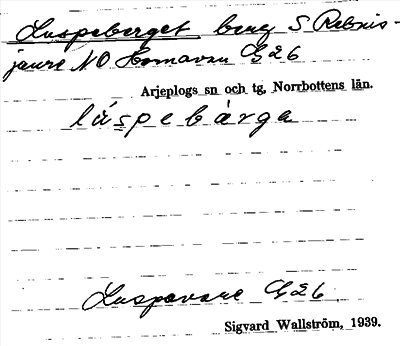 Luspeberget berg S Rebnis-
jaure NO Hornavan G26
Arjeplogs sn och tg, Norrbottens län.
lúspebärga
Luspavare G26
Sigvard Wallström, 1939.